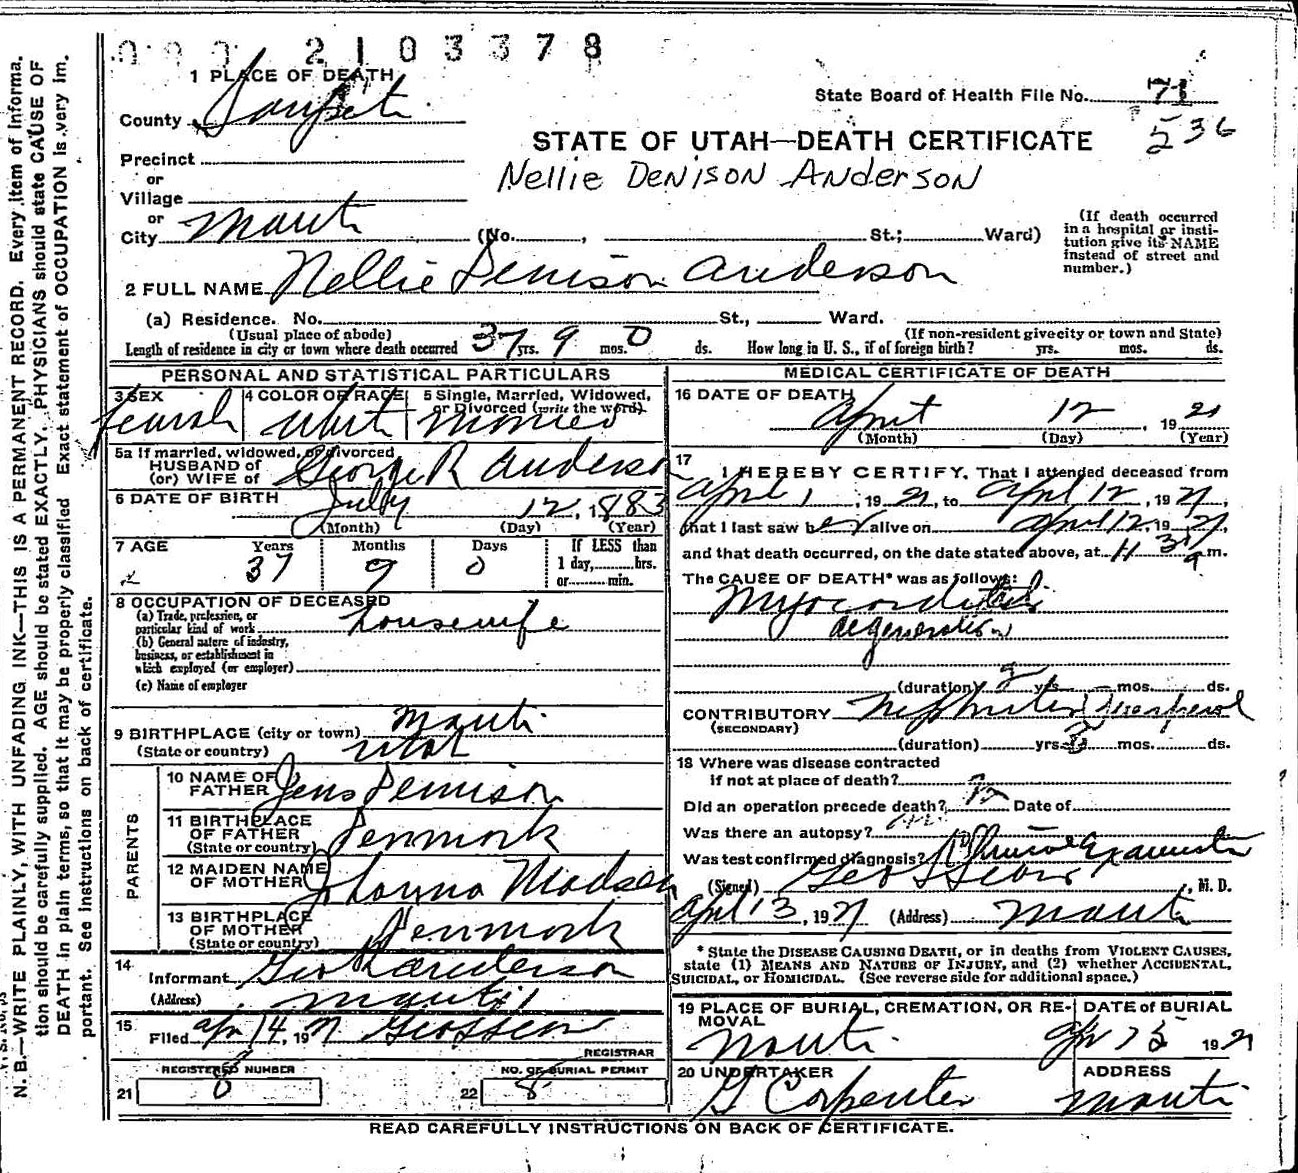 2103378
1 PLACE OF DEATH
State Board of Health File No. 71
536
County Sanpete
STATE OF UTAH—DEATH CERTIFICATE
Precinct
or
Nellie Denison Anderson
Village
or
City Manti (No. , St.; Ward)
(If death occurred
in a hospital or insti-
tution give its NAME
instead of street and
number.)
2 FULL NAME Nellie Denison Anderson
(a) Residence. No. St., Ward.
(Usual place of abode) (If non-resident give city or town and State)
Length of residence in city or town where death occurred 37 yrs. 9 mos. 0 ds. How long in U. S., if of foreign birth? yrs. mos. ds.
PERSONAL AND STATISTICAL PARTICULARS
3 SEX 4 COLOR OR RACE 5 Single, Married, Widowed,
or Divorced (write the word)
Female White Married
5a If married, widowed, or divorced
HUSBAND of
(or) WIFE of George R Anderson
6 DATE OF BIRTH July 12, 1883
(Month) (Day) (Year)
7 AGE Years Months Days If LESS than
37 9 0 1 day, hrs.
or min.
8 OCCUPATION OF DECEASED
(a) Trade, profession, or
particular kind of work housewife
(b) General nature of industry,
business, or establishment in
which employed (or employer)
(c) Name of employer
9 BIRTHPLACE (city or town) Manti
(State or country) Utah
PARENTS
10 NAME OF
FATHER Jens Denison
11 BIRTHPLACE
OF FATHER Denmark
(State or country)
12 MAIDEN NAME
OF MOTHER Johanna Madsen
13 BIRTHPLACE
OF MOTHER Denmark
(State or country)
14
Informant Geo R Anderson
(Address) Manti
15
Filed Apr 14, 1921
REGISTRAR
REGISTERED NUMBER NO. OF BURIAL PERMIT
21 8 22 8
MEDICAL CERTIFICATE OF DEATH
16 DATE OF DEATH
April 12, 1921
(Month) (Day) (Year)
17
I HEREBY CERTIFY, That I attended deceased from
April 1, 1921, to April 12, 1921,
that I last saw her alive on April 12, 1921,
and that death occurred, on the date stated above, at 11 30 a m.
The CAUSE OF DEATH* was as follows:
Myocardial
degeneration
(duration) 2 yrs. — mos. ds.
CONTRIBUTORY Nephritis
(SECONDARY)
(duration) yrs. mos. ds.
18 Where was disease contracted
if not at place of death?
Did an operation precede death? no Date of
Was there an autopsy? no
Was test confirmed diagnosis?
(Signed) , M. D.
April 13, 1921 (Address) Manti
* State the DISEASE CAUSING DEATH, or in deaths from VIOLENT CAUSES,
state (1) MEANS AND NATURE OF INJURY, and (2) whether ACCIDENTAL,
SUICIDAL, or HOMICIDAL. (See reverse side for additional space.)
19 PLACE OF BURIAL, CREMATION, OR RE-
MOVAL
DATE OF BURIAL
Manti Apr 15 1921
20 UNDERTAKER ADDRESS
G Carpenter Manti
READ CAREFULLY INSTRUCTIONS ON BACK OF CERTIFICATE.
N. B.—WRITE PLAINLY, WITH UNFADING INK—THIS IS A PERMANENT RECORD. Every item of informa-
tion should be carefully supplied. AGE should be stated EXACTLY. PHYSICIANS should state CAUSE OF
DEATH in plain terms, so that it may be properly classified. Exact statement of OCCUPATION is very im-
portant. See instructions on back of certificate.